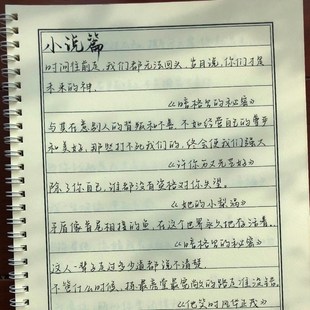 小说篇
时间往前走,我们都无法回头,岁月说,你们才是
未来的神。
《暗格里的秘密》
与其在意别人的背叛和不善,不如经营自己的尊严
和美好,那些打不死我们的,终会使我们强大
《许你万丈光芒好》
除了你自己,谁都没有资格对你失望。
《她的小梨涡》
矛盾像首尾相接的鱼,在这个世界永久地存活着。
《暗格里的秘密》
这人一辈子走过多少道都说不清楚
不管什么时候,拣最亮堂最宽敞的路走准没错。
《他笑时风华正茂》